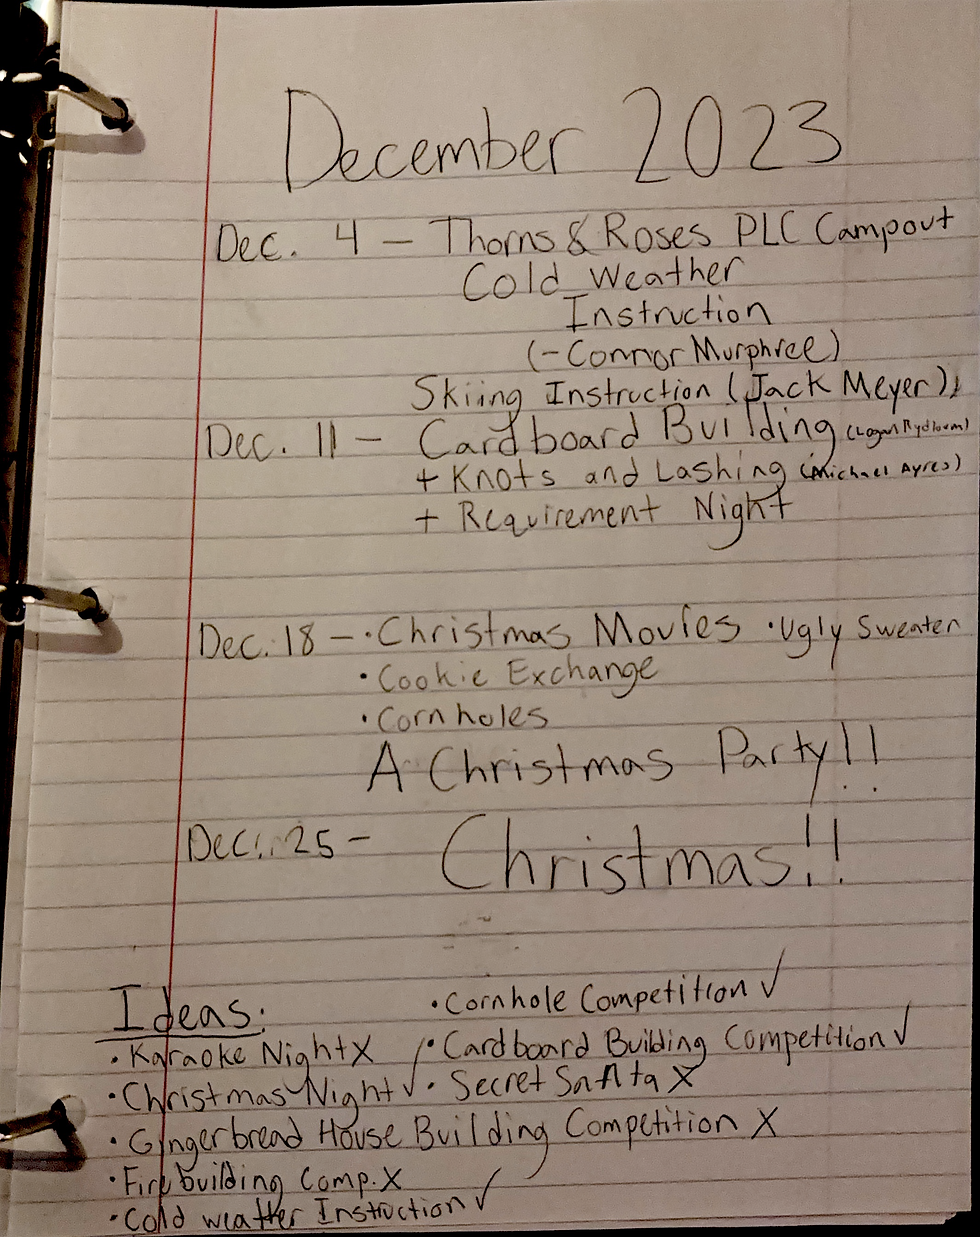 December 2023
Dec. 4 - Thorns & Roses PLC Campout
Cold Weather
Instruction
(-Connor Murphree)
Skiing Instruction (Jack Meyer)
Dec. 11 - Cardboard Building (Logan
+ Knots and Lashing (Michael Ayres)
+ Requirement Night
Dec. 18 - • Christmas Movies • Ugly Sweater
• Cookie Exchange
• Cornholes
A Christmas Party!!
Dec. 25 - Christmas!!
Ideas:
• Karaoke Night X
• Christmas Night ✓
• Cornhole Competition ✓
• Cardboard Building Competition ✓
• Secret Santa X
• Gingerbread House Building Competition X
• Firebuilding Comp. X
• Cold weather Instruction ✓